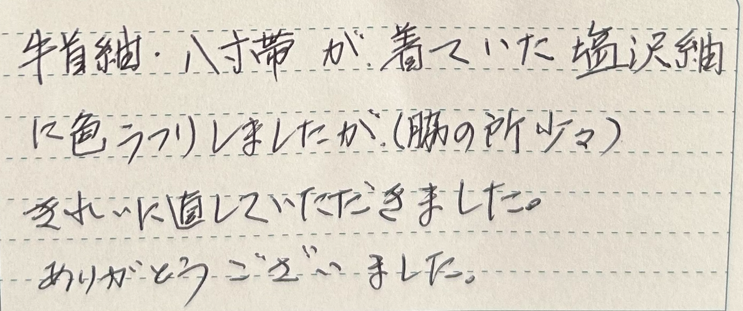 牛首紬・八寸帯が、着ていた塩沢紬
に色うつりしましたが、(脇の所少々)
きれいに直していただきました。
ありがとうございました。